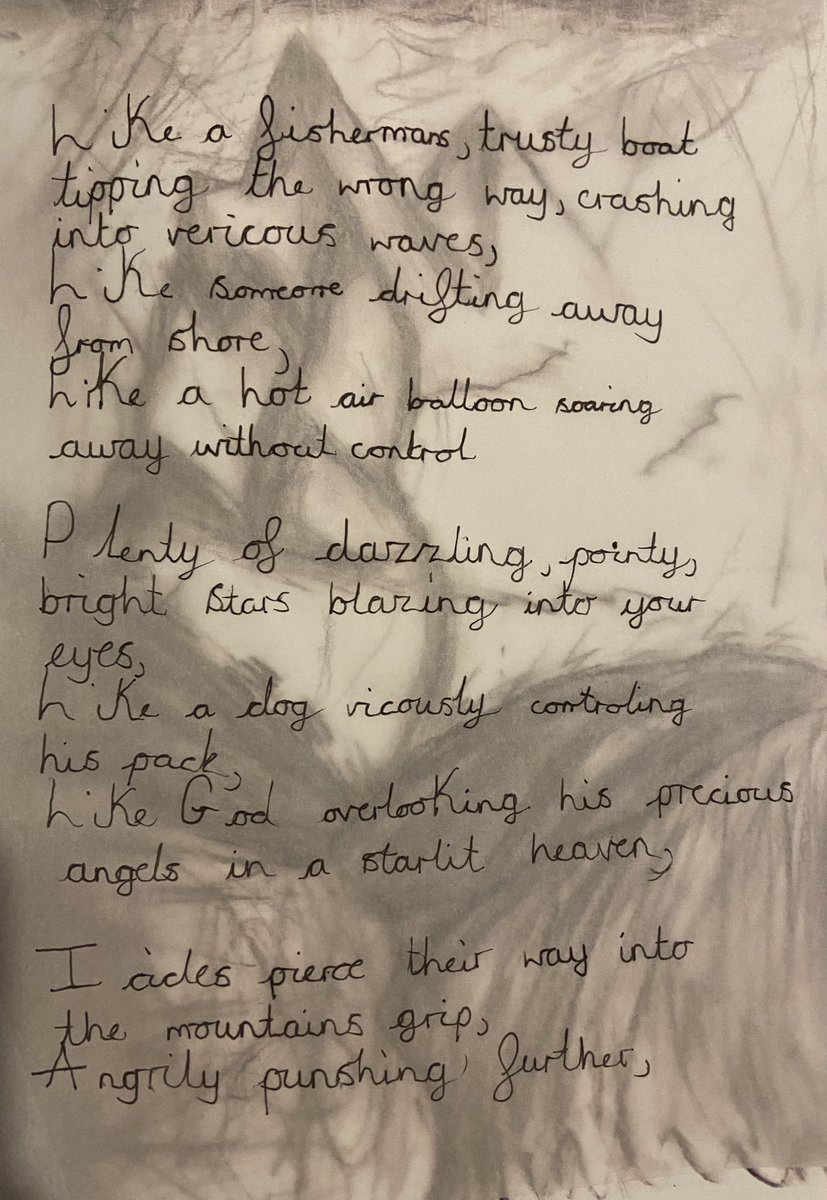 Like a fishermans, trusty boat
tipping the wrong way, crashing
into vericous waves,
Like someone drifting away
from shore,
Like a hot air balloon soaring
away without control
Plenty of dazzling, pointy,
bright stars blazing into your
eyes,
Like a dog vicously controling
his pack,
Like God overlooking his precious
angels in a starlit heaven,
Icicles pierce their way into
the mountains grip,
Angrily punshing further,